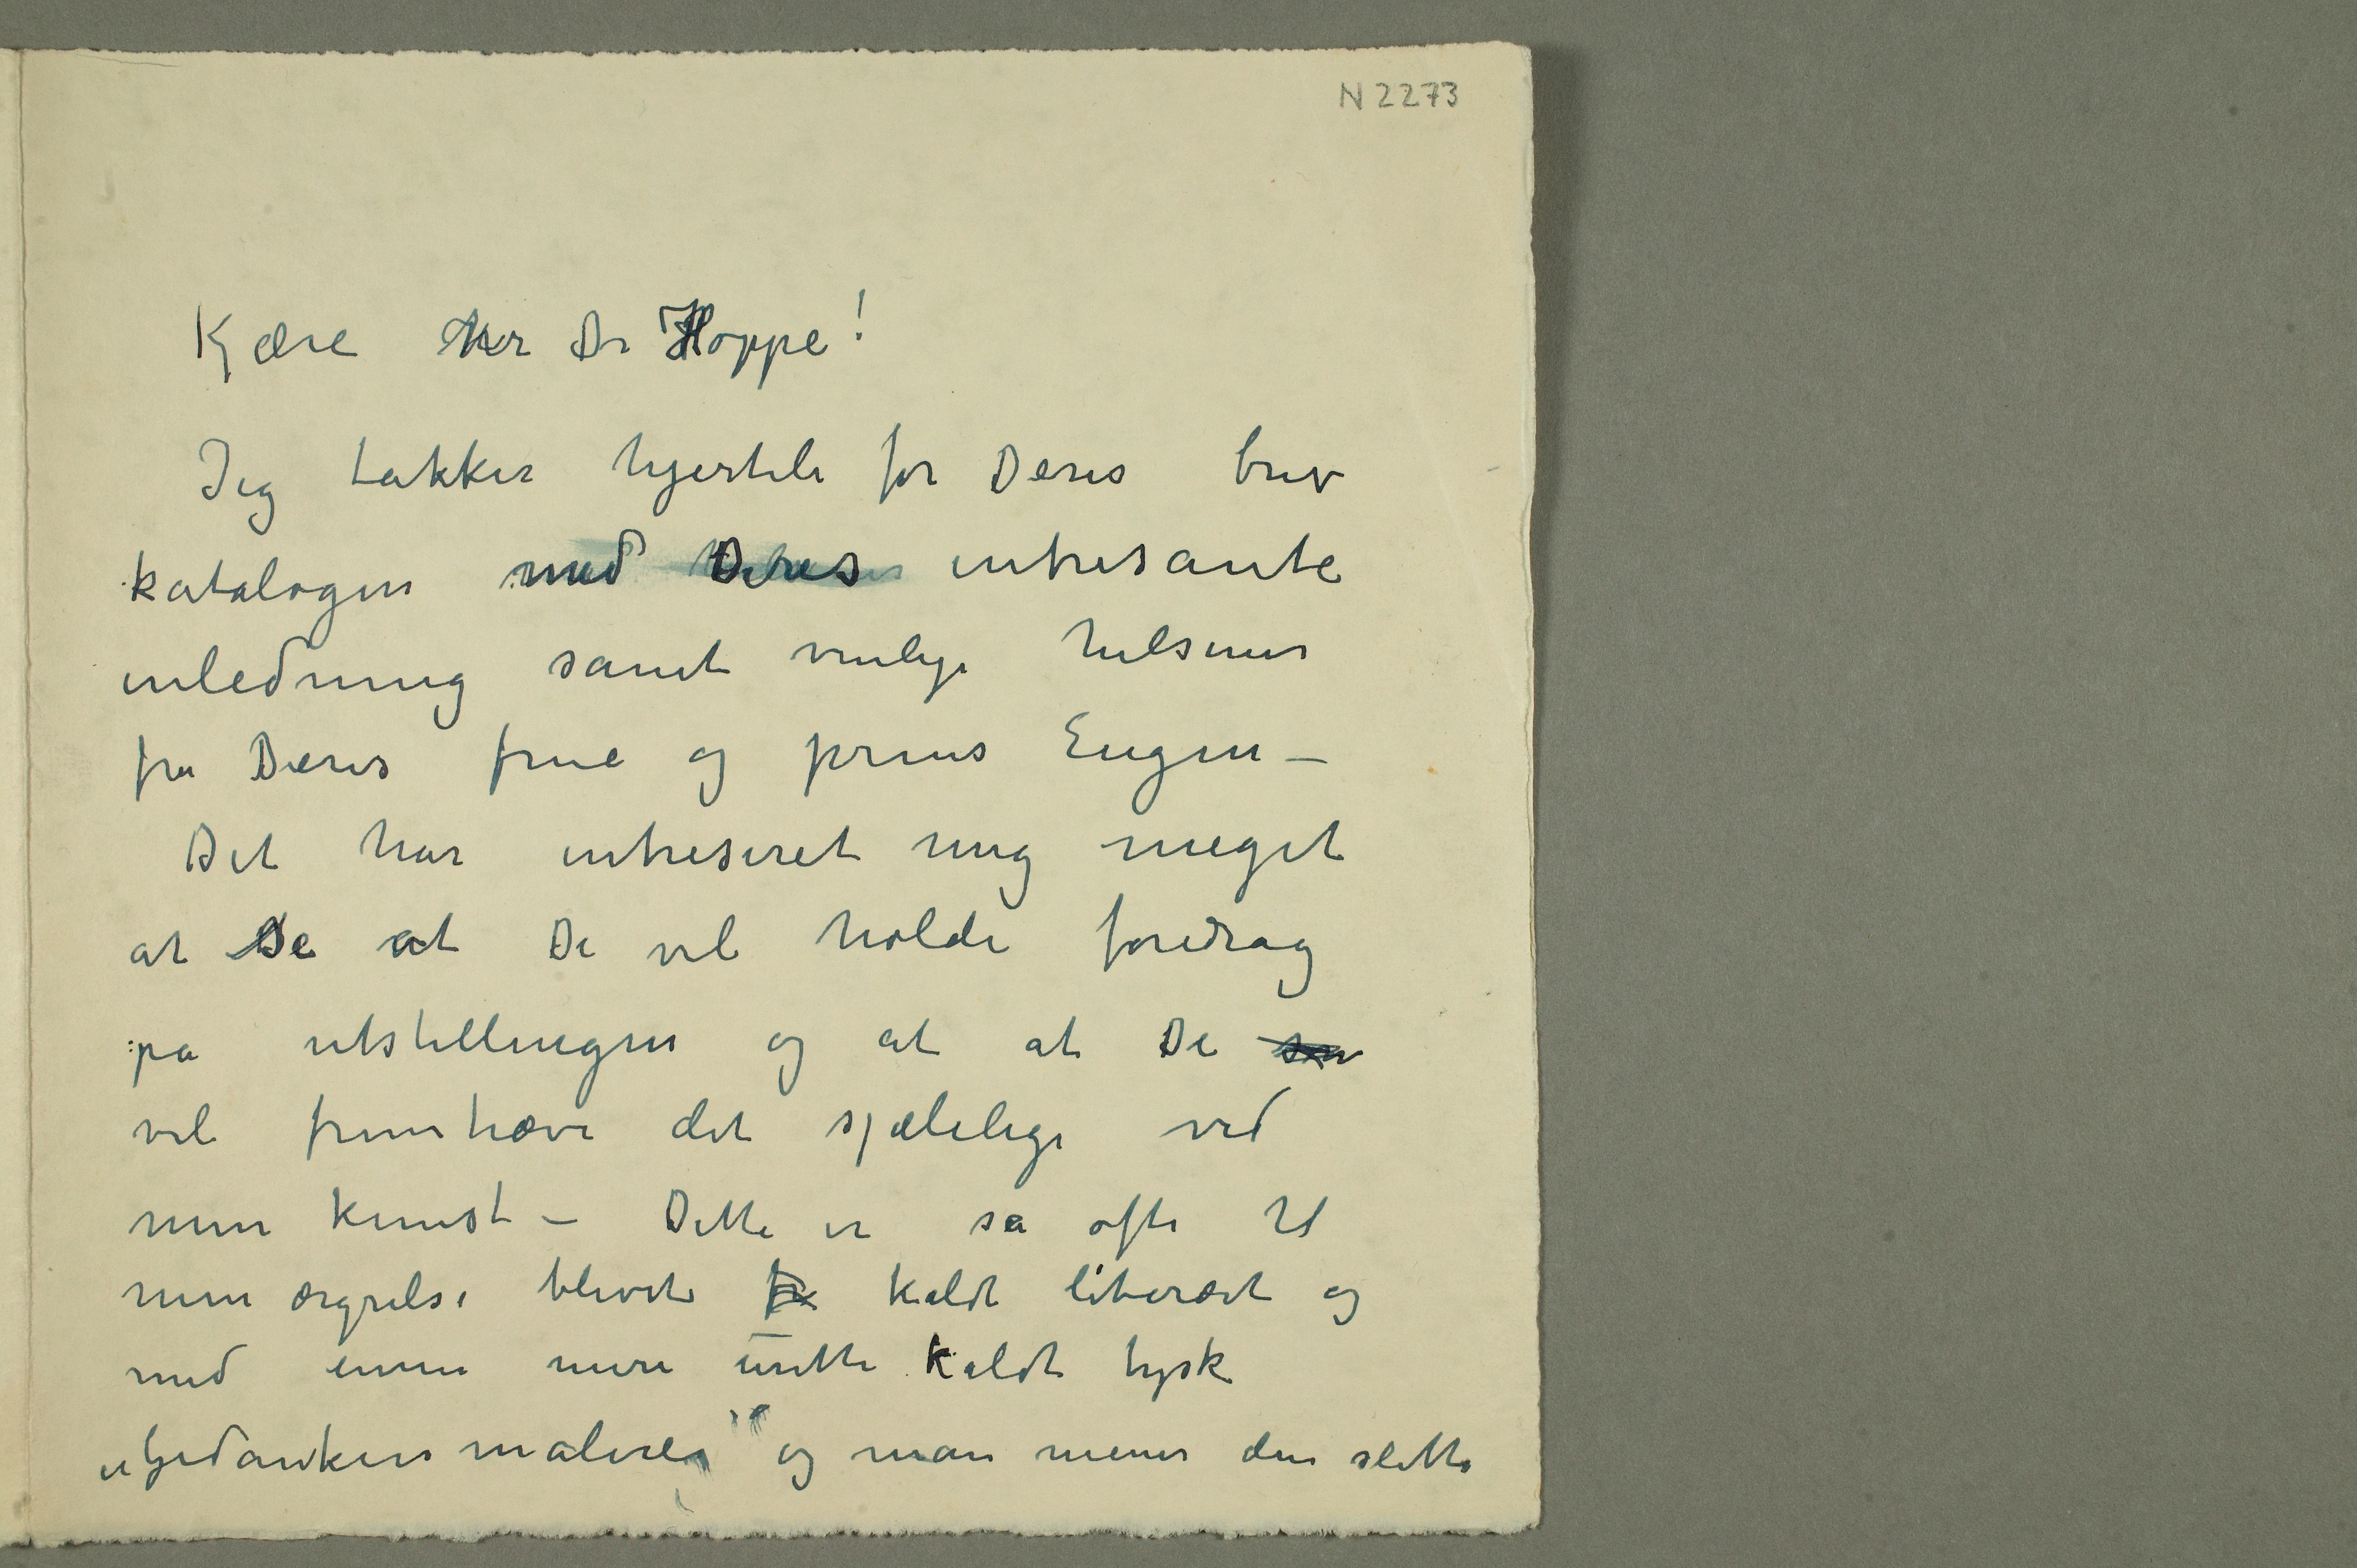 N 2273
Kjære Her Dr Hoppe!
Jeg takker hjerteli for Deres brev
katalogen med Deres intresante
inledning samt venlige hilsener
fra Deres frue og prins Eugen –
Det har intreseret mig meget
at se at De vil holde foredrag
på utstillingen og at at De
vil fremhæve det sjælelige ved
min kunst – Dette er så ofte til
min ærgrelse blevet kaldt literært og
med ennu mere urette kaldt tysk
«Gedankenmalerei» og man mener den slette